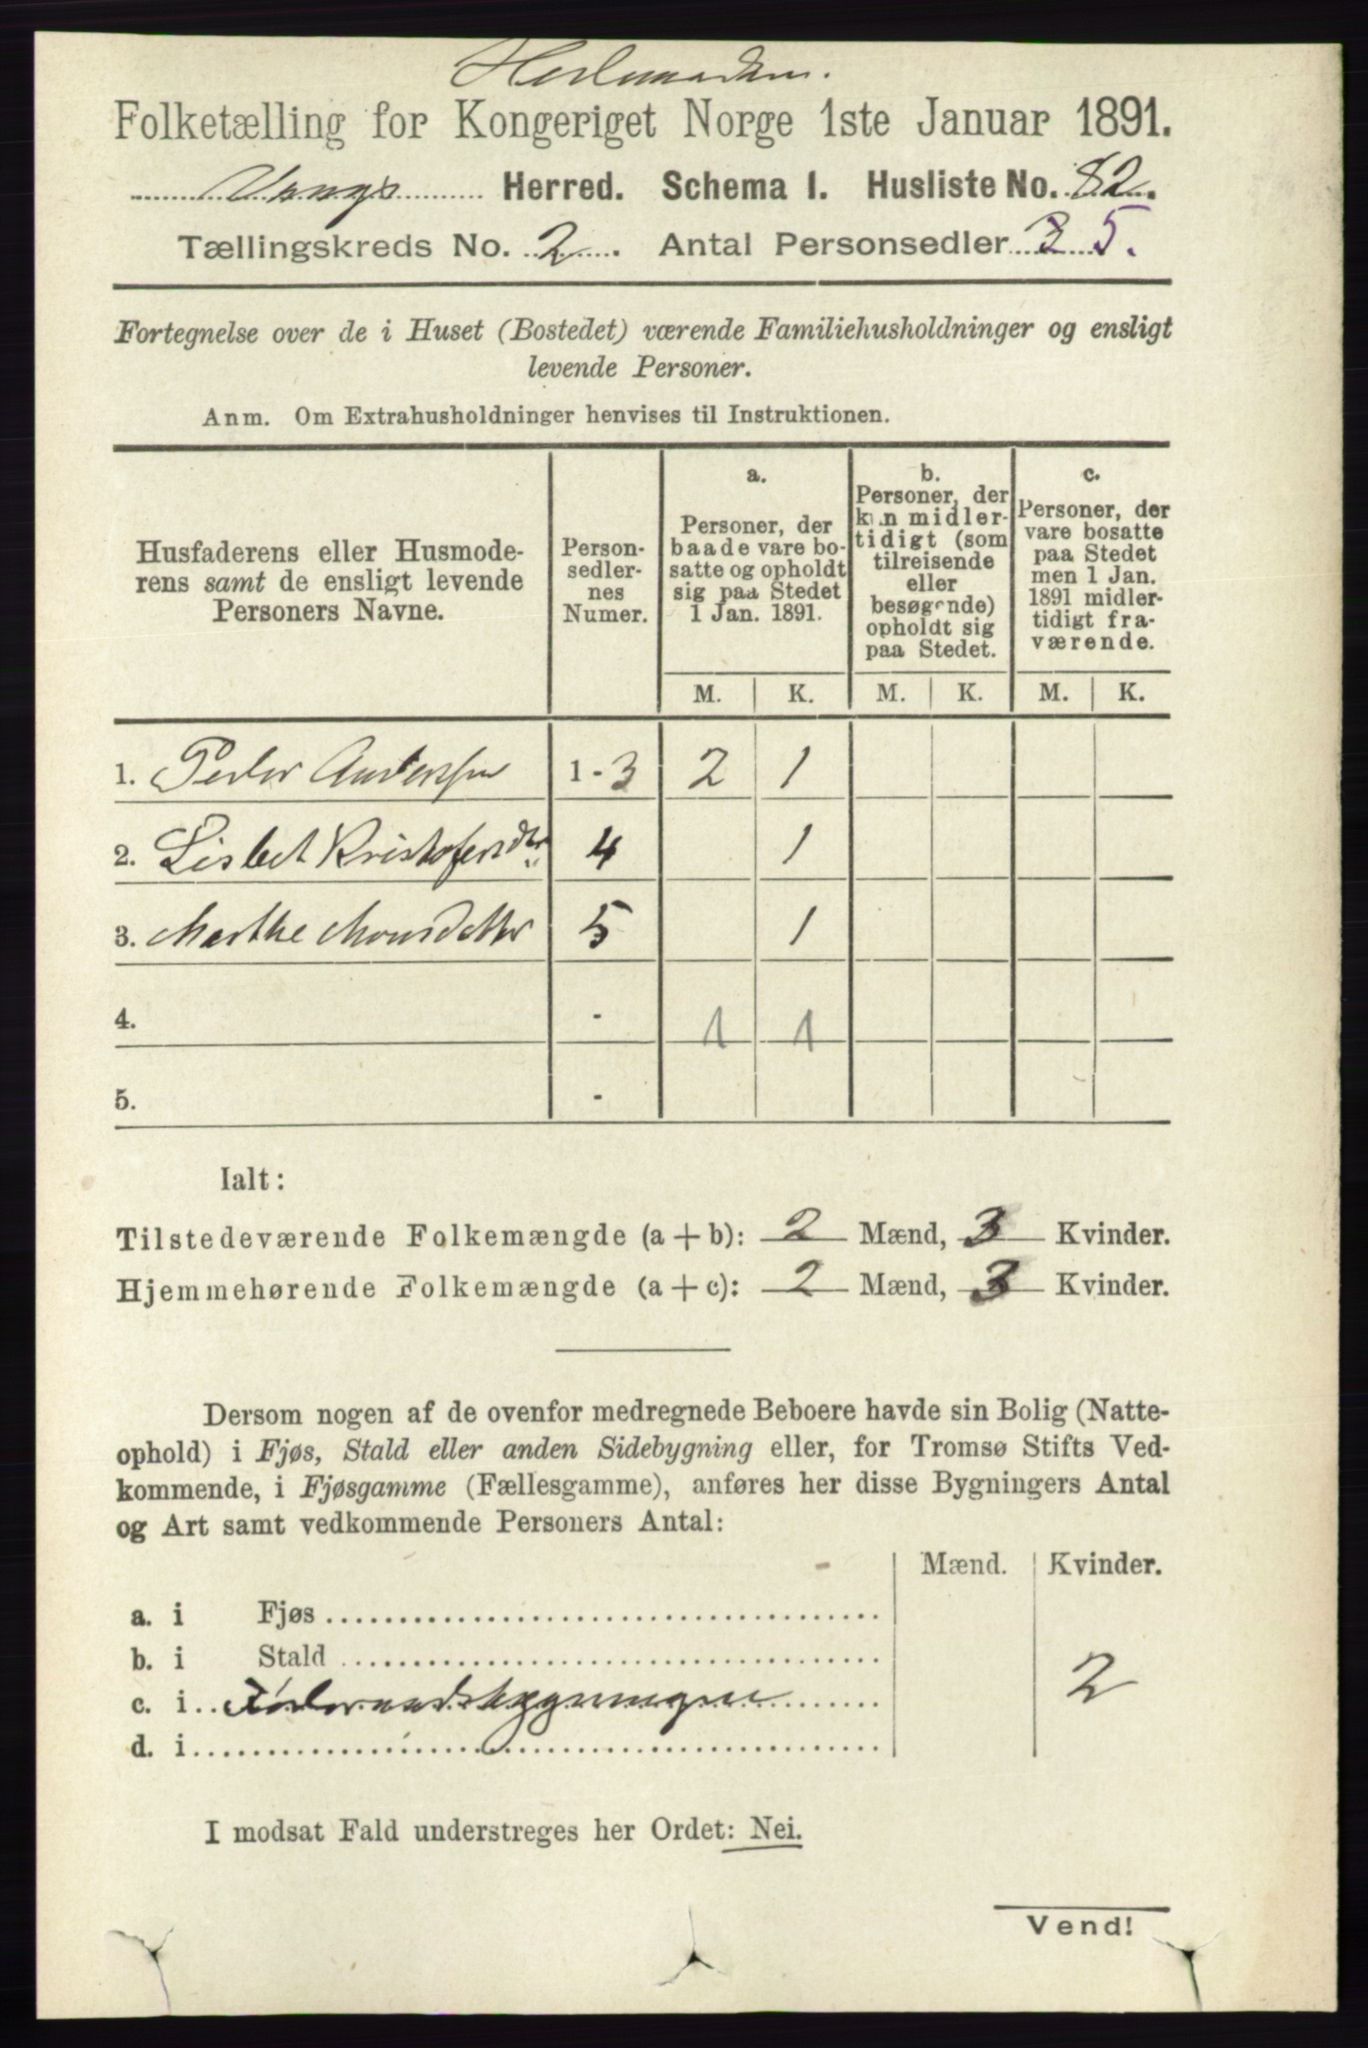 Folketælling for Kongeriget Norge 1ste Januar 1891.
Vangs Herred. Schema I. Husliste No. 82.
Tællingskreds No. 2. Antal Personsedler 5.
Fortegnelse over de i Huset (Bostedet) værende Familiehusholdninger og ensligt
levende Personer.
Anm. Om Extrahusholdninger henvises til Instruktionen.
Husfaderens eller Husmode-
rens samt de ensligt levende
Personers Navne.
Person-
sedler-
nes
Numer.
a.
Personer, der
baade vare bo-
satte og opholdt
sig paa Stedet
1 Jan. 1891.
b.
Personer, der
kun midler-
tidigt (som
tilreisende
eller
besøgende)
opholdt sig
paa Stedet.
c.
Personer, der
vare bosatte
paa Stedet
men 1 Jan.
1891 midler-
tidigt fra-
værende.
M. K. M. K. M. K.
1. Peder Andersen 1 - 3 2 1
2. Lisbet Kristofersdtr 4 1
3. Marthe Monsdatter 5 1
4. - 1 1
5. -
Ialt:
Tilstedeværende Folkemængde (a + b): 2 Mænd, 3 Kvinder.
Hjemmehørende Folkemængde (a + c): 2 Mænd, 3 Kvinder.
Dersom nogen af de ovenfor medregnede Beboere havde sin Bolig (Natte-
ophold) i Fjøs, Stald eller anden Sidebygning eller, for Tromsø Stifts Ved-
kommende, i Fjøsgamme (Fællesgamme), anføres her disse Bygningers Antal
og Art samt vedkommende Personers Antal:
Mænd. Kvinder.
a. i Fjøs
b. i Stald
c. i Föderaadsbygningen 2
d. i
I modsat Fald understreges her Ordet: Nei.
Vend!